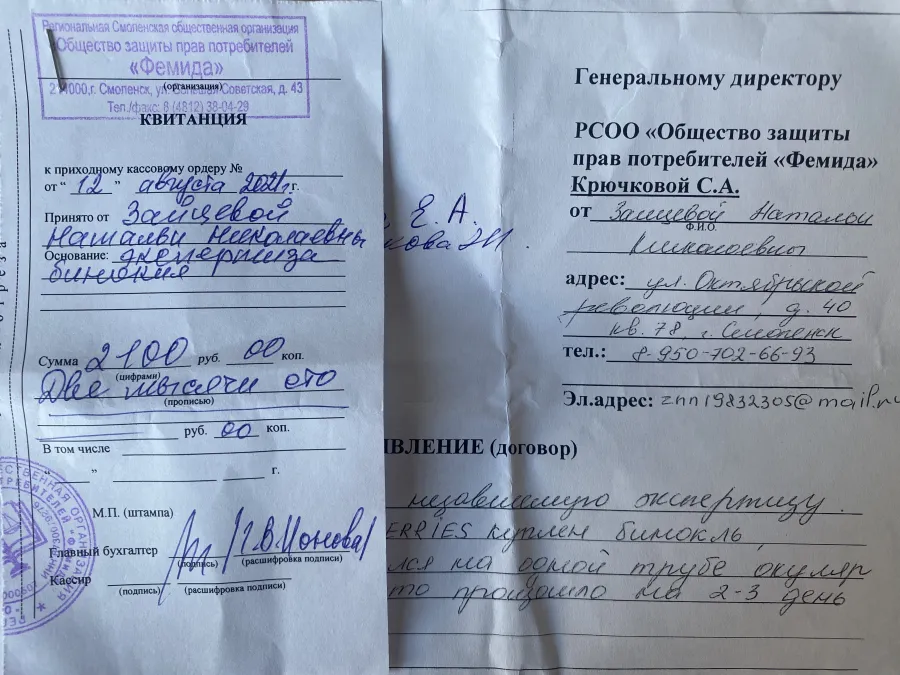 Региональная Смоленская общественная организация
Общество защиты прав потребителей
«Фемида»
(организация)
214000,г. Смоленск, ул. Большая Советская, д. 43
Тел./факс: 8 (4812) 38-04-29
КВИТАНЦИЯ
к приходному кассовому ордеру №
от “ 12 ” августа 2021г. г.
Принято от Зайцевой
Натальи Николаевны
Основание: экспертиза
бинокля
Сумма 2100 руб. 00 коп.
(цифрами)
Две тысячи сто
(прописью)
руб. 00 коп.
В том числе
“ ” г.
М.П. (штампа)
Главный бухгалтер Г.В.Ионова
(подпись) (расшифровка подписи)
Кассир
(подпись) (расшифровка подписи)
отреза
Е.А.
кова Э.И.
Генеральному директору
РСОО «Общество защиты
прав потребителей «Фемида»
Крючковой С.А.
от Зайцевой Натальи
Ф.И.О.
Николаевны
адрес: ул. Октябрьской
революции, д. 40
кв. 78 г. Смоленск
тел.: 8-950-702-66-93
Эл.адрес: znn19832305@mail.ru
ВЛЕНИЕ (договор)
независимую экспертизу.
ERRIES куплен бинокль,
лся на одной трубе окуляр
то произошло на 2-3 день